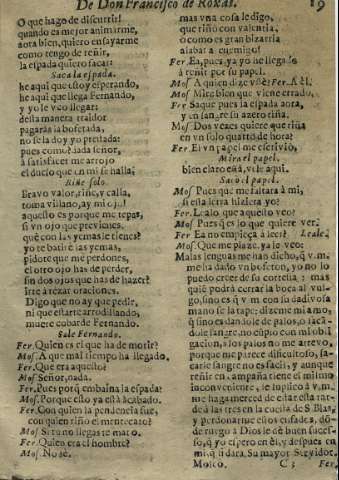 De Don Francisco de Roxas. 19
O que hago de discurrir!
quando es mejor animarme,
aora bien, quiero ensayarme
como tengo de reñir,
la espada quiero sacar:
Saca la espada.
he aqui que estoy esperando,
he aqui que llega Fernando,
y yo le veo llegar:
desta manera traidor
pagarás la bofetada,
no se la doy yo prestada:
pues como? nada señor,
a satisfacer me arrojo
el duelo que en mi se halla;
Riñe solo.
Bravo valor, riñe, y calla,
toma villano, ay mi ojo!
aquesto es porque me tepas,
si vn ojo que previenes,
què con las yemas le tienes?
yo te batirè las yemas,
pidote que me perdones,
el otro ojo has de perder,
sin dos ojos que has de hazer?
irte a rezar oraciones.
Digo que no ay que pedir,
ni que estarte arrodillando,
muere cobarde Fernando.
Sale Fernando.
Fer. Quien es el que ha de morir?
Mos. A que mal tiempo ha llegado.
Fer. Que era aquesto?
Mos. Señor, nada.
Fer. Pues porq̃ embaina la espada?
Mos. Porque esto ya està acabado.
Fer. Con quien la pendencia fue,
con quien riño el mentecato?
Mos. Si tu no llegas te mato.
Fer. Quien era el hombre?
Mos. No sè.
mas vna cosa le digo,
que riñò con valentia,
o como es gran bizarria
alabar a enemigo!
Fer. Ea, pues, ya yo he llegado
à reñir por su papel.
Mos. A quien dize vsted? Fer. A èl.
Mos. Mire bien que viene errado.
Fer. Saque pues la espada aora,
y en sangre su azero tiña.
Mos. Dos vezes quiere que riña
en vn solo quarto de hora?
Fer. El vn papel me escrivio,
Mira el papel.
bien claro està, vele aqui.
Sacò el papel.
Mos. Pues que me faltara à mi,
si esta letra hiziera yo?
Fer. Lealo que aquesto veo?
Mos. Pues q̃ es lo que quiere ver?
Fer. Ea no empieça à leer? Leale.
Mos. Que me plaze, ya leo:
Malas lenguas me han dicho, q̃ v.m.
me ha dado vn bofeton, yo no lo
puedo creer de su cortesia; mas
quiè podrà cerrar la boca al vulgo,
sino es q̃ v.m. con su dadivosa
mano se la tape; dizeme mi amo,
q̃ sino es dandole de palos, o sacãdole
sangre, no cũplo con mi obligacion,
a los palos no me atrevo,
porque me parece dificultoso, sacarle
sangre no es facil, y aunque
reñir en campaña tiene el mismo
inconveniente, le suplico à v.m.
me haga merced de estar esta tarde
à las tres en la cuesta de S. Blas,
y perdoname estos enfados, dõde
ruego à Dios le dè buen sucesso,
q̃ yo espero en èl, y despues en
mi, q̃ si dara. Su mayor Servidor.
Mosco. C 3 Fer.